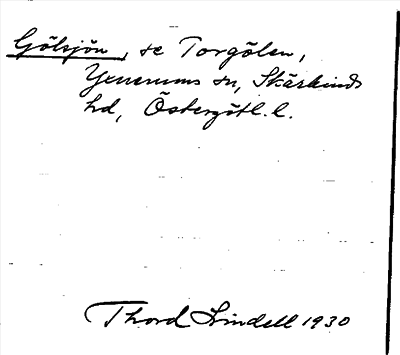 Gölsjön, se Torgölen,
Yxnerums sn, Skärkinds
hd, Östergötl. l.
Thord Lindell 1930